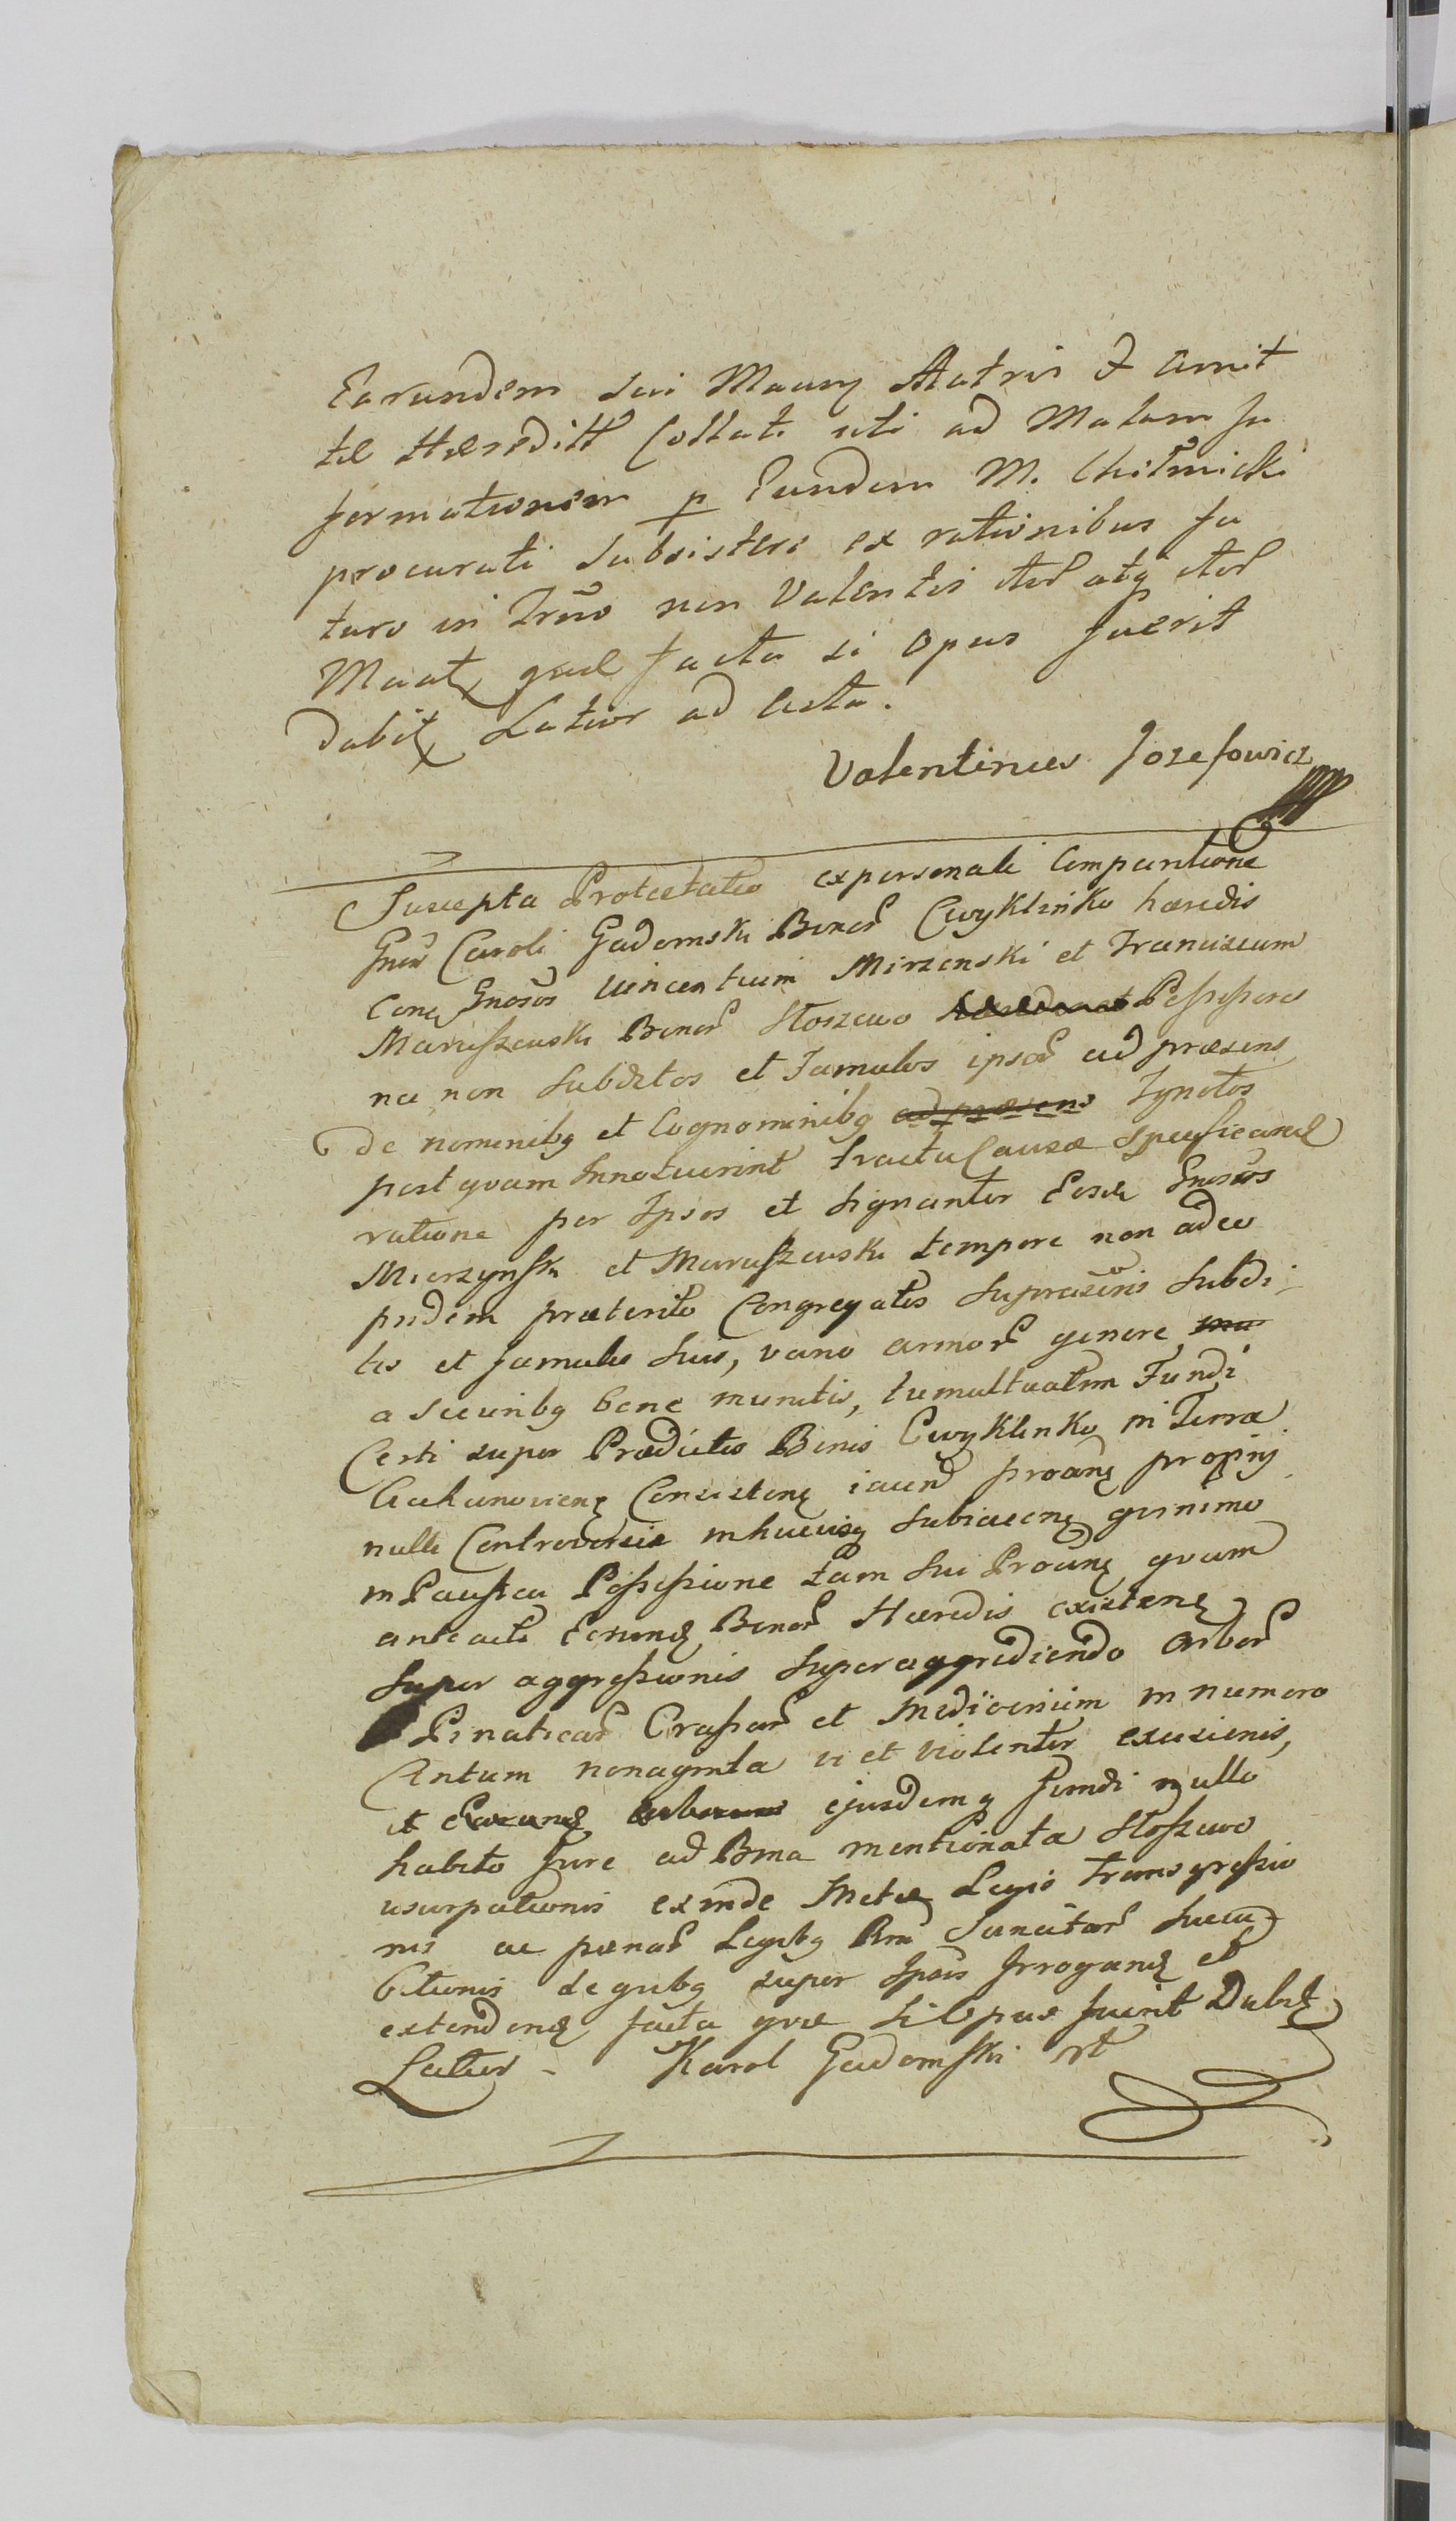 Earundem sui Matris & Amit
tæ Hæreditt Collati uti ad Malam In
formationem p Eundem M. Chełmicki
procurati subsistere ex rationibus In
turo in Trno non Valentis
quæ facta si opus fuerit
dabit Latior ad Acta.
Valentinus Jozefowicz
Suscepta Protestatio ex personali Comparitione
Gnsi Caroli Gadomski Bonor Cwyklinko hæredis
Con Gnosos Vincentium Mirzenski et Franciscum
Maruszewski Bonor Stoszewo Possessores
nec non subditos et Famulos ipsor ad præsens
de nominibq et Cognominibq ad præsens Ignotos
post quam Innotuerint tractu Causæ Specificand
ratione per Ipsos et signanter Eosd Gnosos
Mierzynski et Maruszewski tempore non adeo
pridem præterito Congregatis suprascriis subdi
tis et famulis suis, vario armor genere
ascuribq bene munitis, tumultuatim Fundi
Certi super Prædictis Bonis Cwyklinko in Terra
Ciechanovien Consisten iacen proan propry
nulli Controversiæ inhucusq subiacen quinimo
in Pacifica Possessione tam sui Proan quam
anteacti Eorund Bonor Hæredis existen
super aggressionis superaggrediendo Arbor
Pinaticar Crassar et Mediocrium in numero
Centum nonaginta vi et violenter excisionis,
et Earund ejusdemq fundi nullo
habito Jure ad Bona mentionata Stoszewo
usurpationis exinde Metæ Legis transgressio
nis ac pænar Legibq Rni Sancitar Succu
bitionis de quibq super Ipsis Irrogand et
extendend facta quæ si opus fuerit Dabit
Latior - Karol Gadomski